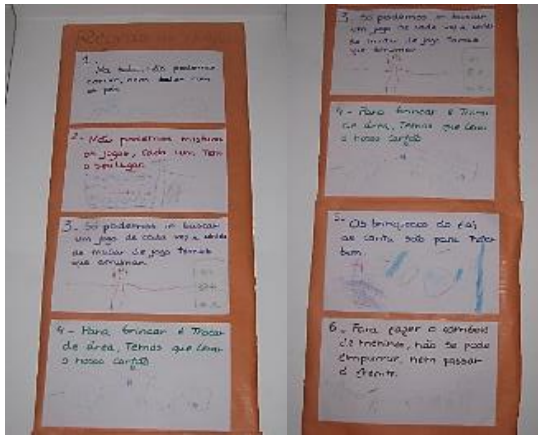 Regras
1.
Na sala não podemos
correr, nem bater com
os pés.
2- Não podemos misturar
os jogos, cada um tem
o seu lugar.
3- Só podemos ir buscar
um jogo de cada vez e antes
de mudar de jogo temos
que arrumar.
4- Para brincar e trocar
de área, temos que levar
o nosso cartão
3- Só podemos ir buscar
um jogo de cada vez e antes
de mudar de jogo temos
que arrumar.
4- Para brincar e trocar
de área, temos que levar
o nosso cartão
5- Os brinquedos do
são para tratar
bem.
6- Para fazer o comboio
de meninos, não se pode
empurrar, nem passar
à frente.